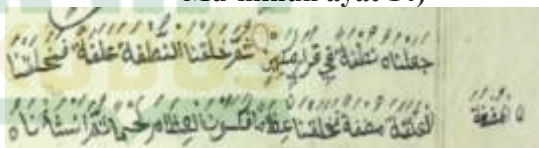 Mu'minun ayat 14)
جعلناه نطفة في قرار مكين ثم خلقنا النطفة علقة فخلقنا
العلقة مضغة فخلقنا عظاما فكسونا العظام لحما ثم انشأناه
المضغة